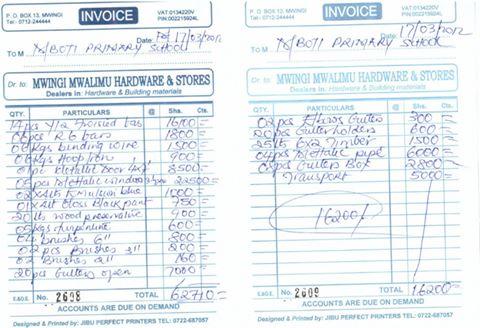 P. O. BOX 13, MWINGI
Tel: 0712-244444
INVOICE
VAT:0134220V
PIN:002215924L
Date: 17/03/2012
To M BOTI PRIMARY
SCHOOL
Dr. to: MWINGI MWALIMU HARDWARE & STORES
Dealers in: Hardware & Building materials
QTY. PARTICULARS @ Shs. Cts.
14pcs Y12 Twisted bars 16100 =
pcs R6 bars 1800 =
kgs binding wire 1500 =
kgs Hoop iron 900 =
01pc Metallic Door 8500 =
05pcs Metallic windows
02 Emulsion blue 1000 =
01 Gloss Black paint 750 =
20 lts wood preservative 900 =
kgs 600 =
Brushes 6" 800 =
02 pcs Brushes 3" 200 =
02 Brushes 2" 160 =
20pc Gutters open 7000 =
E.&O.E. No. 2698 TOTAL 62710 =
ACCOUNTS ARE DUE ON DEMAND
Designed & Printed by: JIBU PERFECT PRINTERS TEL: 0722-687057
P. O. BOX 13, MWINGI
Tel: 0712-244444
INVOICE
VAT:0134220V
PIN:002215924L
Date: 17/03/2012
To M BOTI PRIMARY
SCHOOL
Dr. to: MWINGI MWALIMU HARDWARE & STORES
Dealers in: Hardware & Building materials
QTY. PARTICULARS @ Shs. Cts.
02pcs Gutters 300 =
20pcs Gutter holders 600 =
25ft 6x2 Timber 1500 =
04pc Metallic pipe 6000 =
Gutters Box 2800 =
Transport 5000 =
16200/
E.&O.E. No. 2699 TOTAL 16200 =
ACCOUNTS ARE DUE ON DEMAND
Designed & Printed by: JIBU PERFECT PRINTERS TEL: 0722-687057